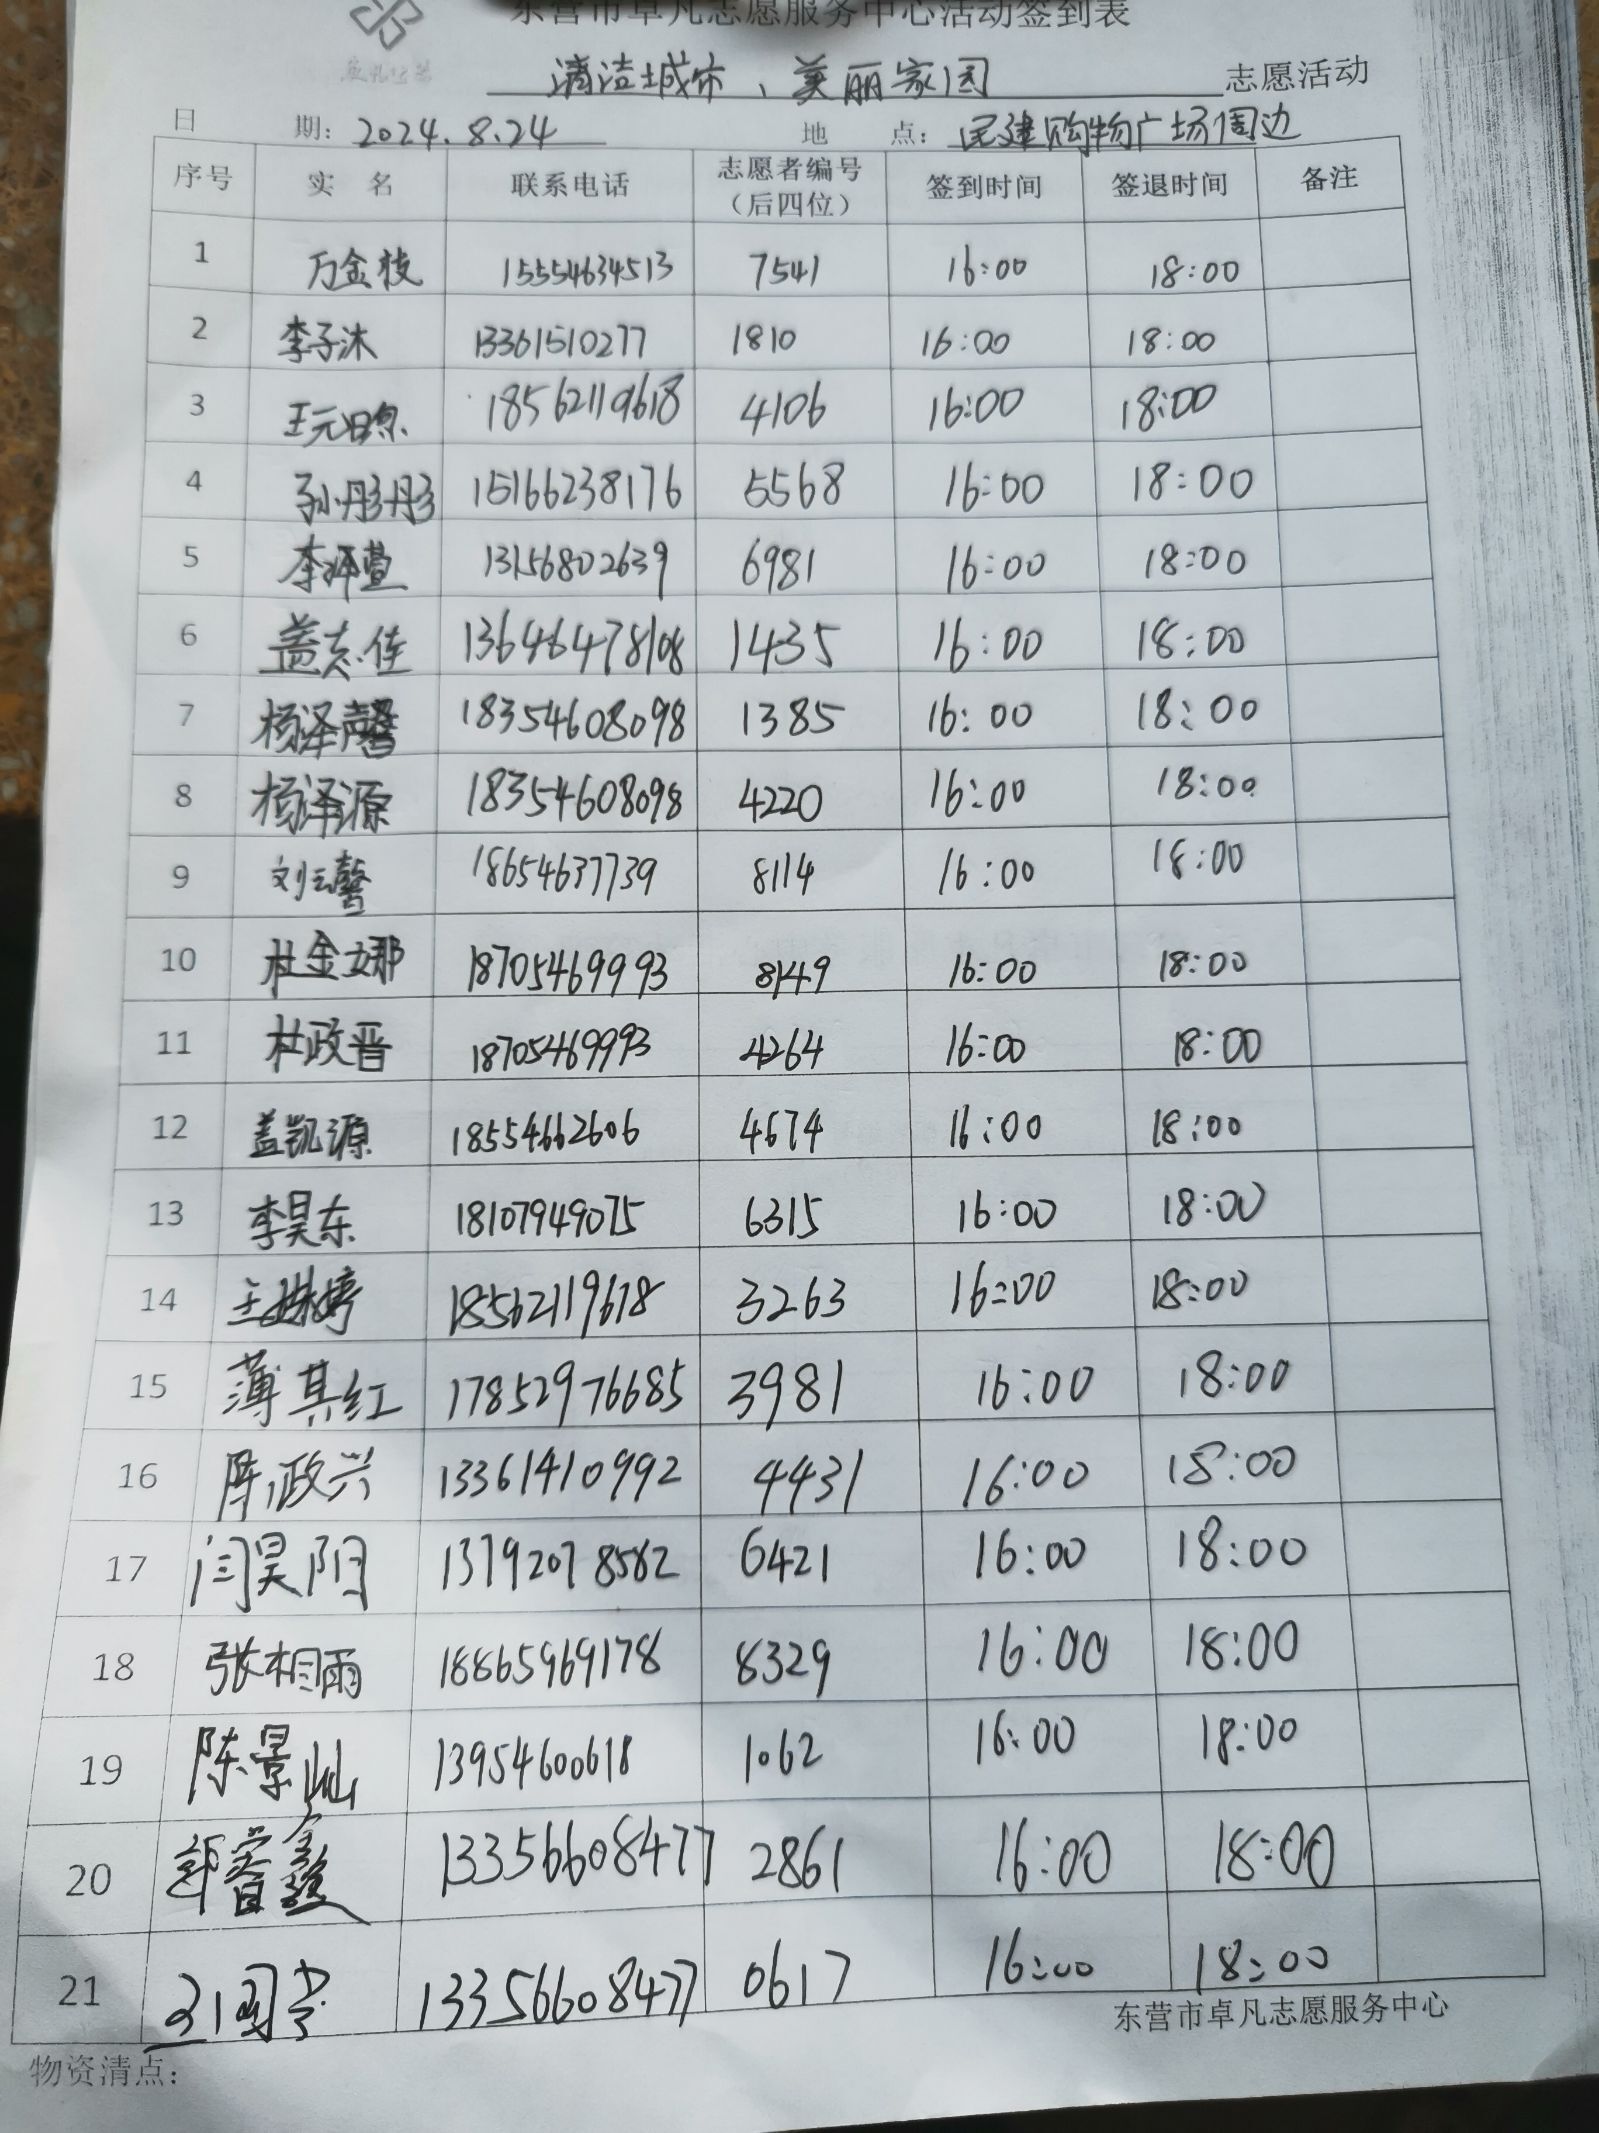 东营市卓凡志愿服务中心活动签到表
清洁城市、美丽家园 志愿活动
日 期：2024.8.24 地 点：民建购物广场周边
序号 实 名 联系电话 志愿者编号（后四位） 签到时间 签退时间 备注
1 万金枝 15554634513 7541 16:00 18:00
2 李子沐 13361510277 1810 16:00 18:00
3 王元 18562119618 4106 16:00 18:00
4 孙彤彤 15166238176 5568 16:00 18:00
5 李萱 13156802639 6981 16:00 18:00
6 盖志佳 13646478108 1435 16:00 18:00
7 杨泽馨 18354608098 1385 16:00 18:00
8 杨泽源 18354608098 4220 16:00 18:00
9 刘云馨 18654637739 8114 16:00 18:00
10 杜金娜 18705469993 8149 16:00 18:00
11 杜政晋 18705469993 4264 16:00 18:00
12 盖凯源 18554662606 4674 16:00 18:00
13 李昊东 18107949075 6315 16:00 18:00
14 王婷 18562119618 3263 16:00 18:00
15 薄其红 17852976685 3981 16:00 18:00
16 陈政兴 13361410992 4431 16:00 18:00
17 闫昊阳 13792078562 6421 16:00 18:00
18 张相雨 18865969178 8329 16:00 18:00
19 陈景灿 13954600618 1062 16:00 18:00
20 郭睿鑫 13356608477 2861 16:00 18:00
21 13356608477 0617 16:00 18:00
东营市卓凡志愿服务中心
物资清点：